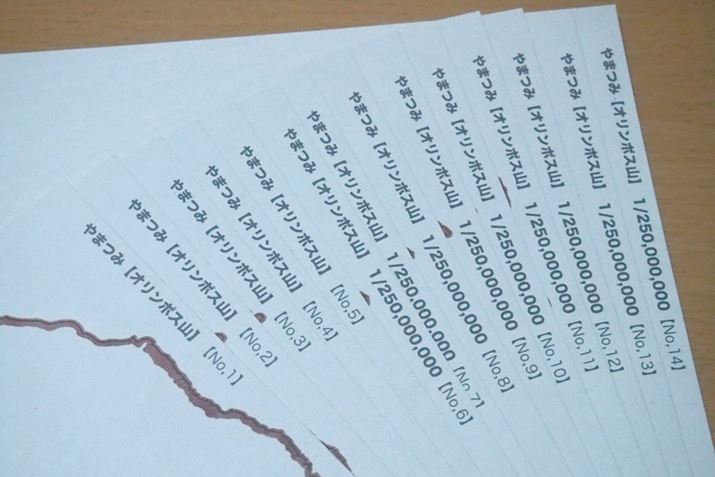 やまつみ【オリンポス山】 [No,1]
やまつみ【オリンポス山】 [No,2]
やまつみ【オリンポス山】 [No,3]
やまつみ【オリンポス山】 [No,4]
やまつみ【オリンポス山】 [No,5]
やまつみ【オリンポス山】 1/250,000,000 [No,6]
やまつみ【オリンポス山】 1/250,000,000 [No,7]
やまつみ【オリンポス山】 1/250,000,000 [No,8]
やまつみ【オリンポス山】 1/250,000,000 [No,9]
やまつみ【オリンポス山】 1/250,000,000 [No,10]
やまつみ【オリンポス山】 1/250,000,000 [No,11]
やまつみ【オリンポス山】 1/250,000,000 [No,12]
やまつみ【オリンポス山】 1/250,000,000 [No,13]
やまつみ【オリンポス山】 1/250,000,000 [No,14]